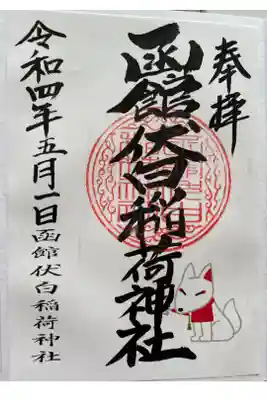 奉拝
函館伏白稲荷神社
令和四年五月一日
函館伏白稲荷神社